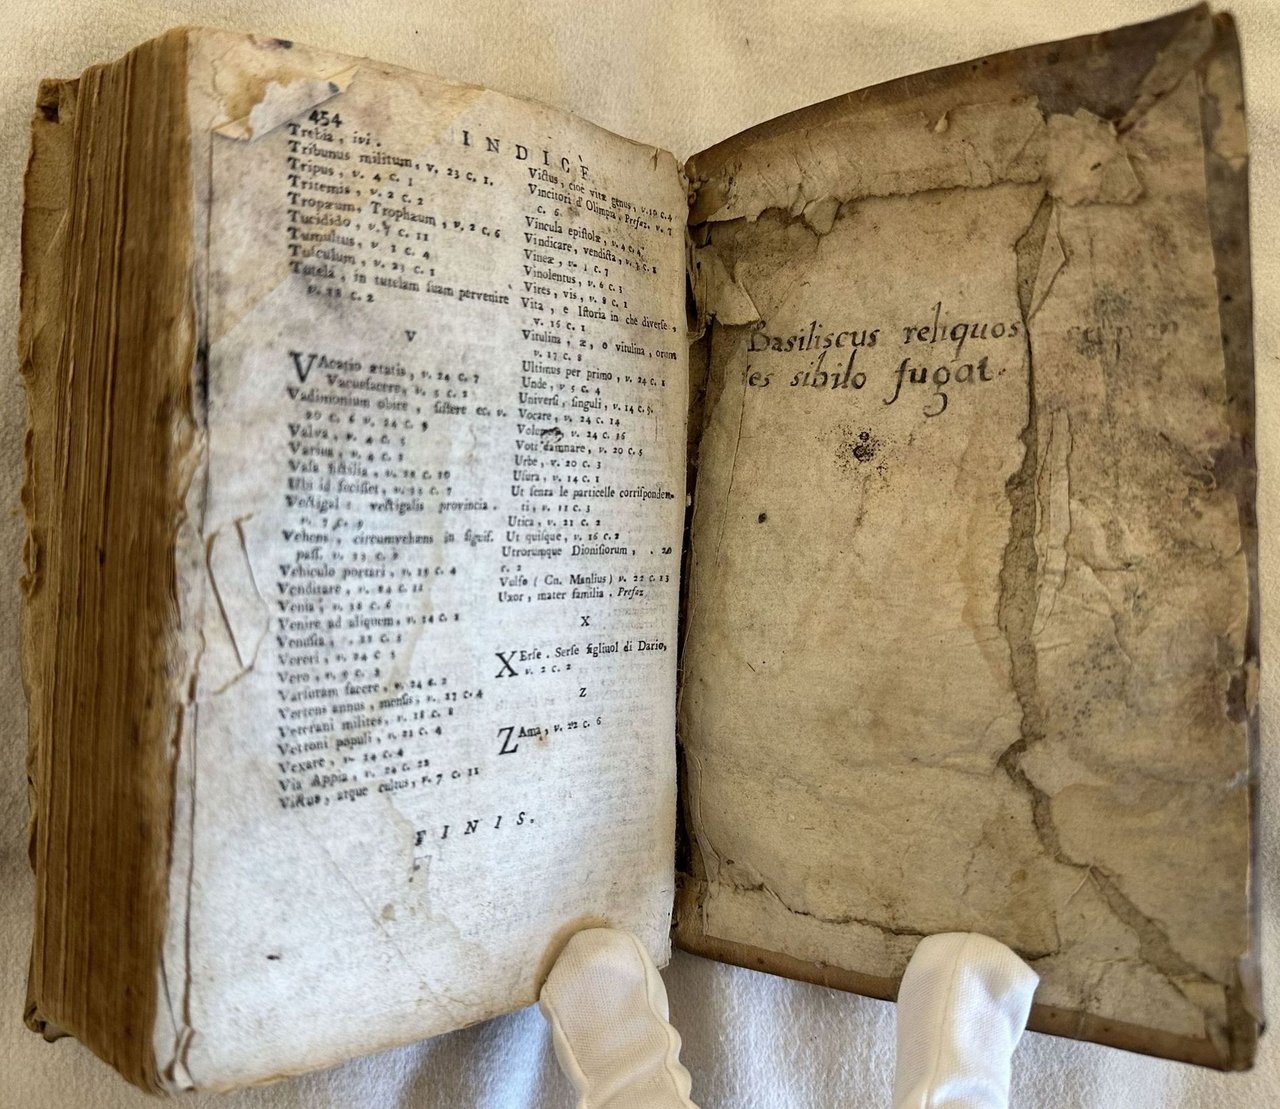 454
INDICE
Trebia, ivi.
Tribunus militum, v. 23 c. 1.
Tripus, v. 4 c. 1
Tritemis, v. 2 c. 2
Tropæum, Trophæum, v, 2 c, 6
Tucidido, v. 7 c. 11
Tumultus, v. 1 c. 4
Tusculum, v. 23 c. 1
Tutela, in tutelam suam pervenire
v. 18 c. 2
V
VAcatio ætatis, v. 24 c. 7
Vacuefacere, v. 5 c. 2
Vadimonium obire, sistere ec. v.
20 c. 6 v. 24 c. 9
Valva, v. 4 c. 5
Varius, v. 4 c. 2
Vasa fictilia, v. c. 10
Ubi id fecisset, v. c. 7
Vectigal: vectigalis provincia.
v. 7 c. 9
Vehens, circumvehens in signif.
pass. v. c.
Vehiculo portari, v. 15 c. 4
Venditare, v. 24 c. 11
Venia, v. 18 c. 6
Venire ad aliquem, v. 24 c. 2
Venusia, c.
Vereri, v. 24 c
Vero, v. 9 c. 2
Versuram facere, v. 24 c. 2
Vertens annus, mensis, v. 17 c. 4
Veterani milites, v. 18 c. 8
Vettoni populi, v. 21 c. 4
Vexare, v. 24 c. 4
Via Appia, v. 24 c. 22
Victus, atque cultus, v. 7 c. 11
Victus, cioè vitæ genus, v. 10 c. 4
Vincitori d'Olimpia, Prefaz. v. 7
c. 6.
Vincula epistolæ, v. 4 c. 4
Vindicare, vendicta, v. 3 c. 2
Vineæ, v. 1 c. 7
Vinolentus, v. 6 c. 3
Vires, vis, v. 8 c. 1
Vita, e Istoria in che diverse,
v. 16 c. 1
Vitulina, æ, o vitulina, orum
v. 17 c. 8
Ultimus per primo, v. 24 c. 1
Unde, v 5 c. 4
Universi, singuli, v. 14 c. 9.
Vocare, v. 24 c. 14
v. 24 c. 16
Voti damnare, v. 20 c. 5
Urbe, v. 20 c. 3
Usura, v. 14 c. 1
Ut senza le particelle corrisponden-
ti, v. 11 c. 3
Utica, v. 21 c. 2
Ut quisque, v. 16 c. 2
Utrorumque Dionisiorum, . 20
c. 2
Vulso (Cn. Manlius) v. 22 c. 13
Uxor, mater familia. Prefaz
X
XErse. Serse figliuol di Dario,
v. 2 c. 2
Z
ZAma, v. 22 c. 6
FINIS.
Basiliscus reliquos
sibilo fugat.